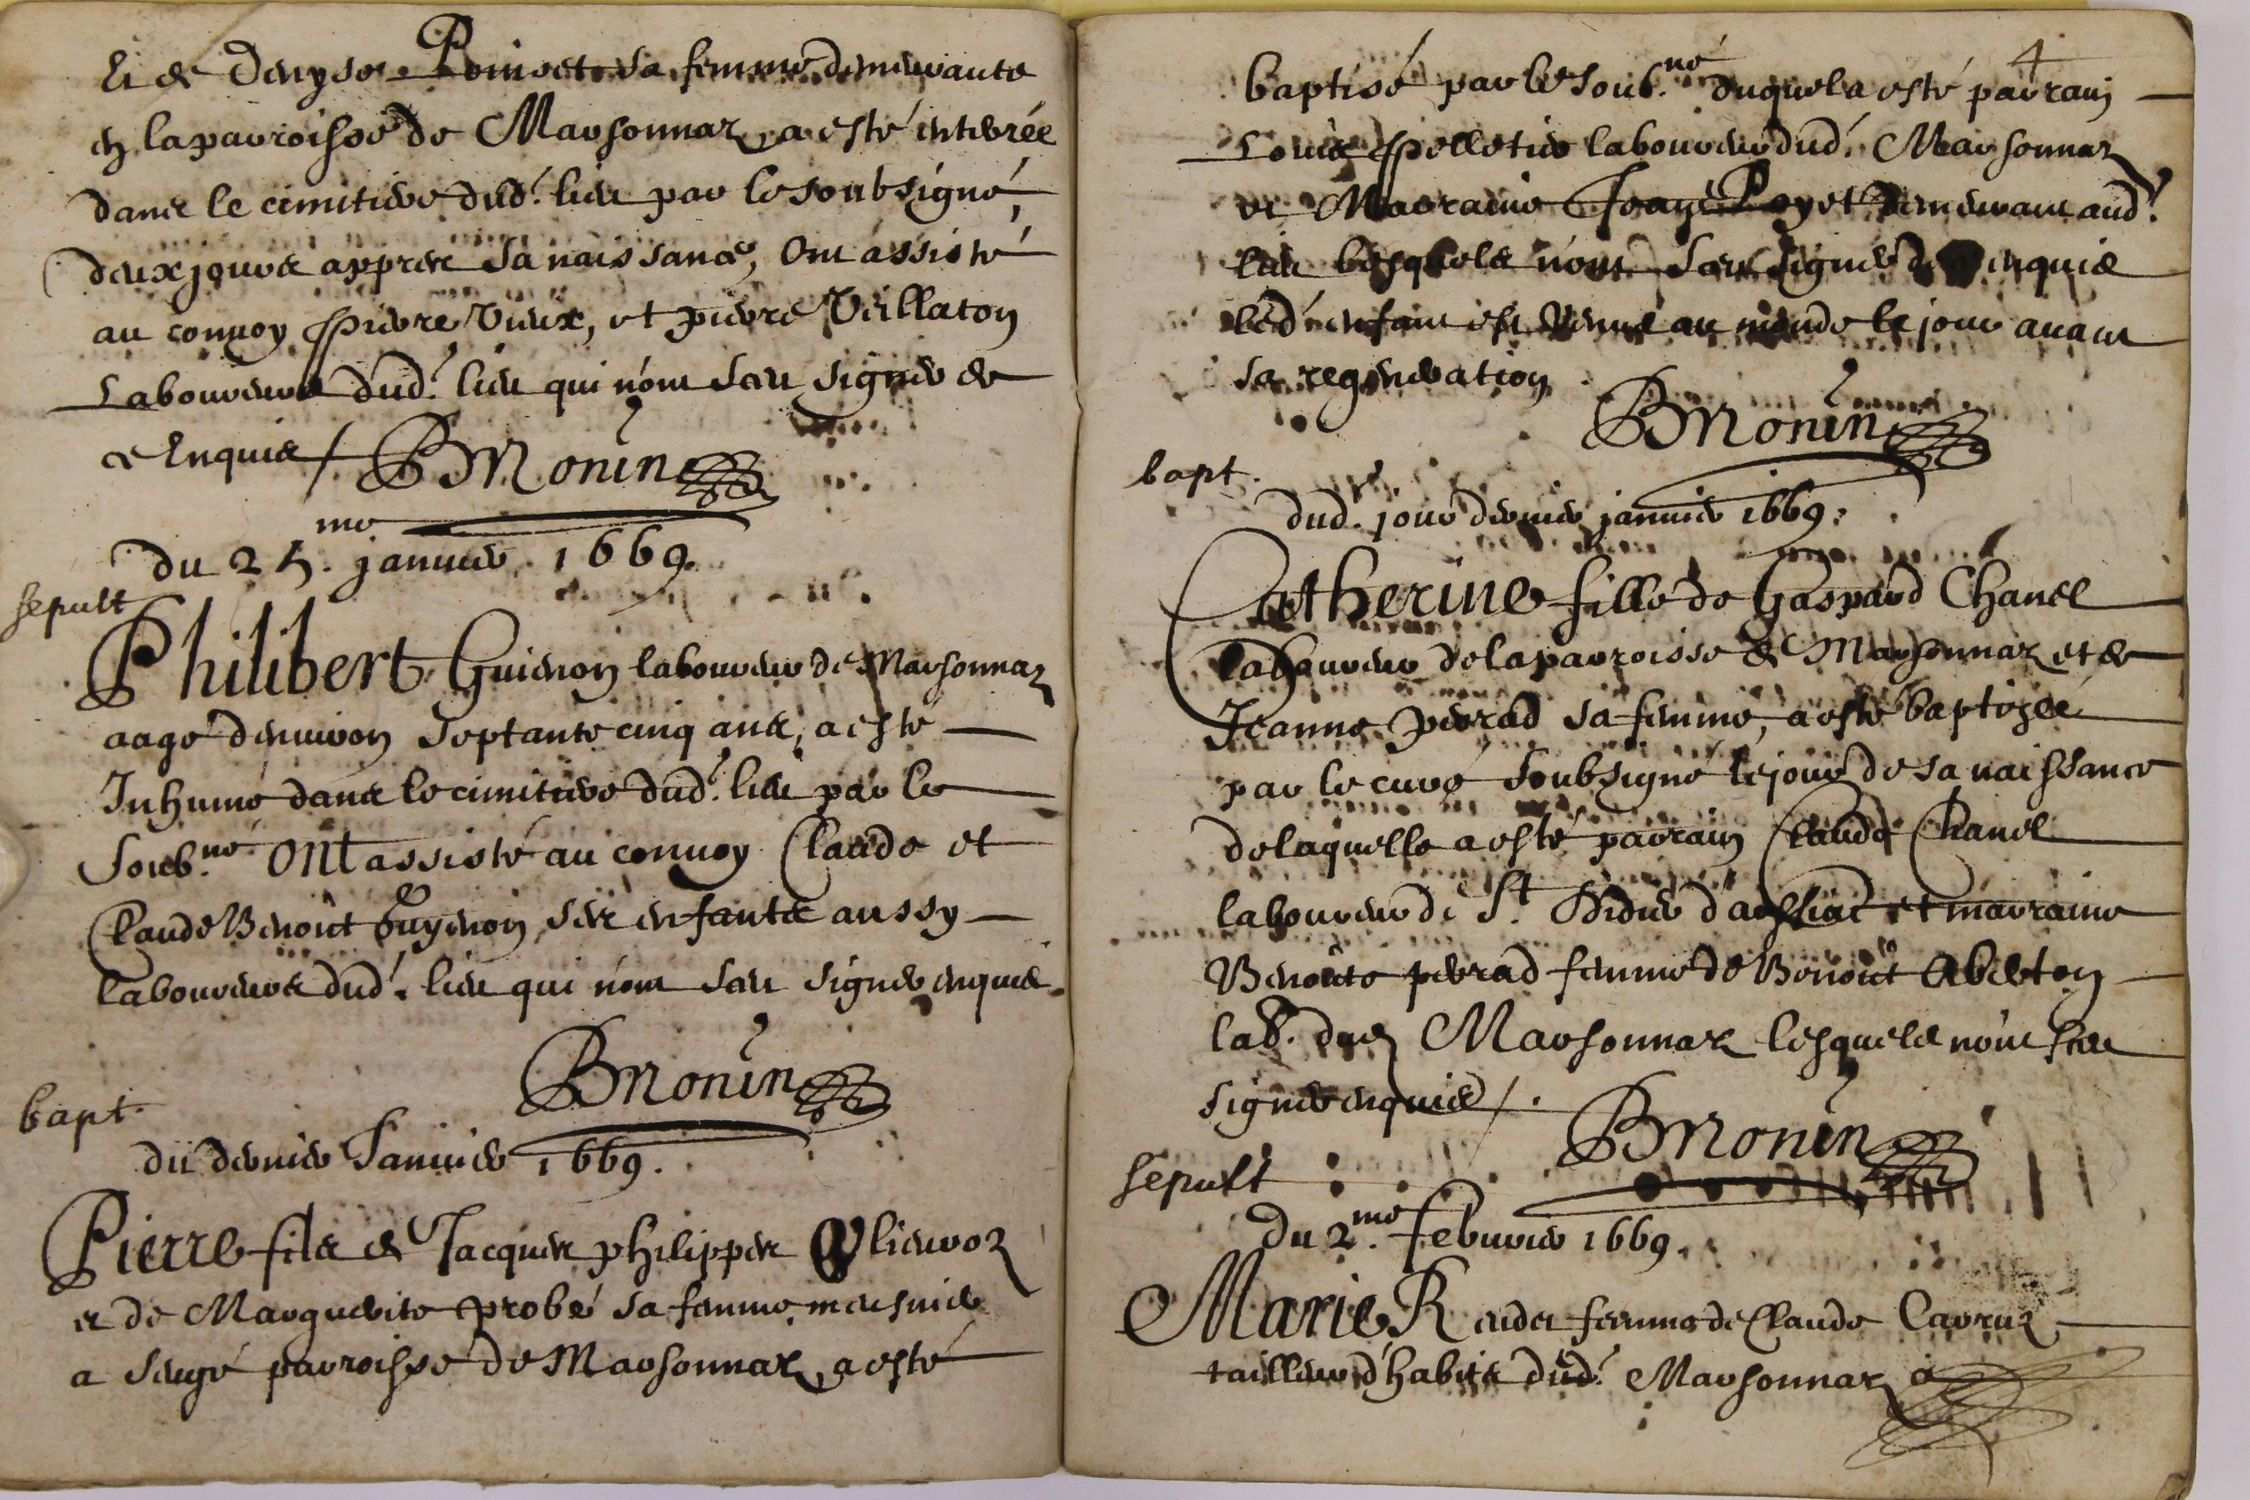 Et de Denyse Poinset sa femme demeurante
en la parroisse de Marsonnaz, a esté enterrée
dans le cimitiere dud.t lieu par le soubsigné,
deux jours appres sa naissance, Ont assisté
au convoy Pierre Vieux, et pierre Veillaton
Laboureurs dud.t lieu qui n'ont sceu signer de
ce Enquis / B Monin
du 25.me janvier 1669.
sepult
Philibert Guienon laboureur de Marsonnaz
aagé d'environ septante cinq ans, a esté
Inhumé dans le cimitiere dud.t lieu par le
Soub.né Ont assisté au convoy Claude et
Claude Benoict Guyenon ses enfants aussy
laboureurs dud.t lieu qui n'ont sceu signer enquis.
B Monin
bapt.
du dernier Janvier 1669.
Pierre fils de Jacques philippes
et de Marguerite Probé sa femme meusnier
a Seugé parroisse de Marsonnaz a esté
4
baptisé par le soub.né duquel a esté parrain
Louis Pelletier laboureur dud.t Marsonnaz
et Marraine Poyet demeurant aud.t
lieu lesquels n'ont sceu signer de enquis
led.t enfant est venu au monde le jour avant
sa regeneration
B Monin
bapt.
dud. jour dernier janvier 1669.
Catherine fille de Gaspard Chanel
laboureur de la parroisse de Marsonnaz et de
Jeanne perrad sa femme, a esté baptizée
par le curé soubsigné le jour de sa naissance
de laquelle a esté parrain Claude Chanel
laboureur de St. Didier d'aussiat et marraine
Benoite perrad femme de Benoict
lab. dud. Marsonnaz lesquels n'ont sceu
signer enquis /.
B Monin
sepult
du 2.me febvrier 1669.
Marie femme de Claude
tailleur d'habits dud.t Marsonnaz a